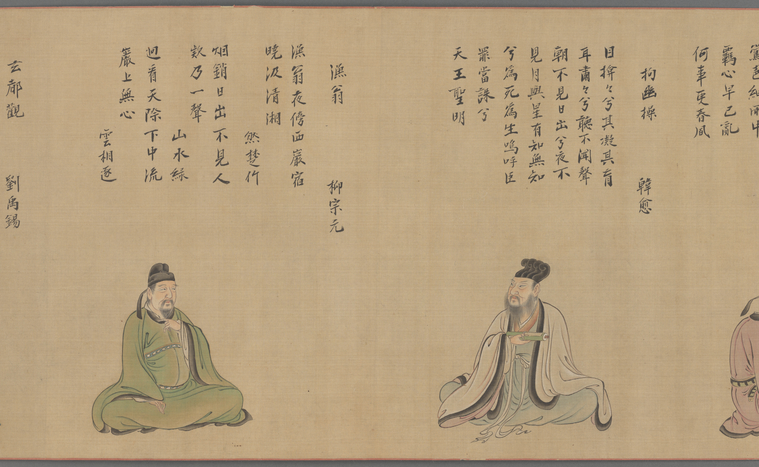 羈心早已亂
何事更春風
拘幽操　韓愈
目揜々兮其凝其盲
耳肅々兮聽不聞聲
朝不見日出兮夜不
見月與星有知無知
兮為死為生嗚呼臣
罪當誅兮
天王聖明
漁翁　柳宗元
漁翁夜傍西巖宿
曉汲清湘
然楚竹
烟銷日出不見人
欸乃一聲
山水綠
迴看天際下中流
巖上無心
雲相逐
玄都觀　劉禹錫